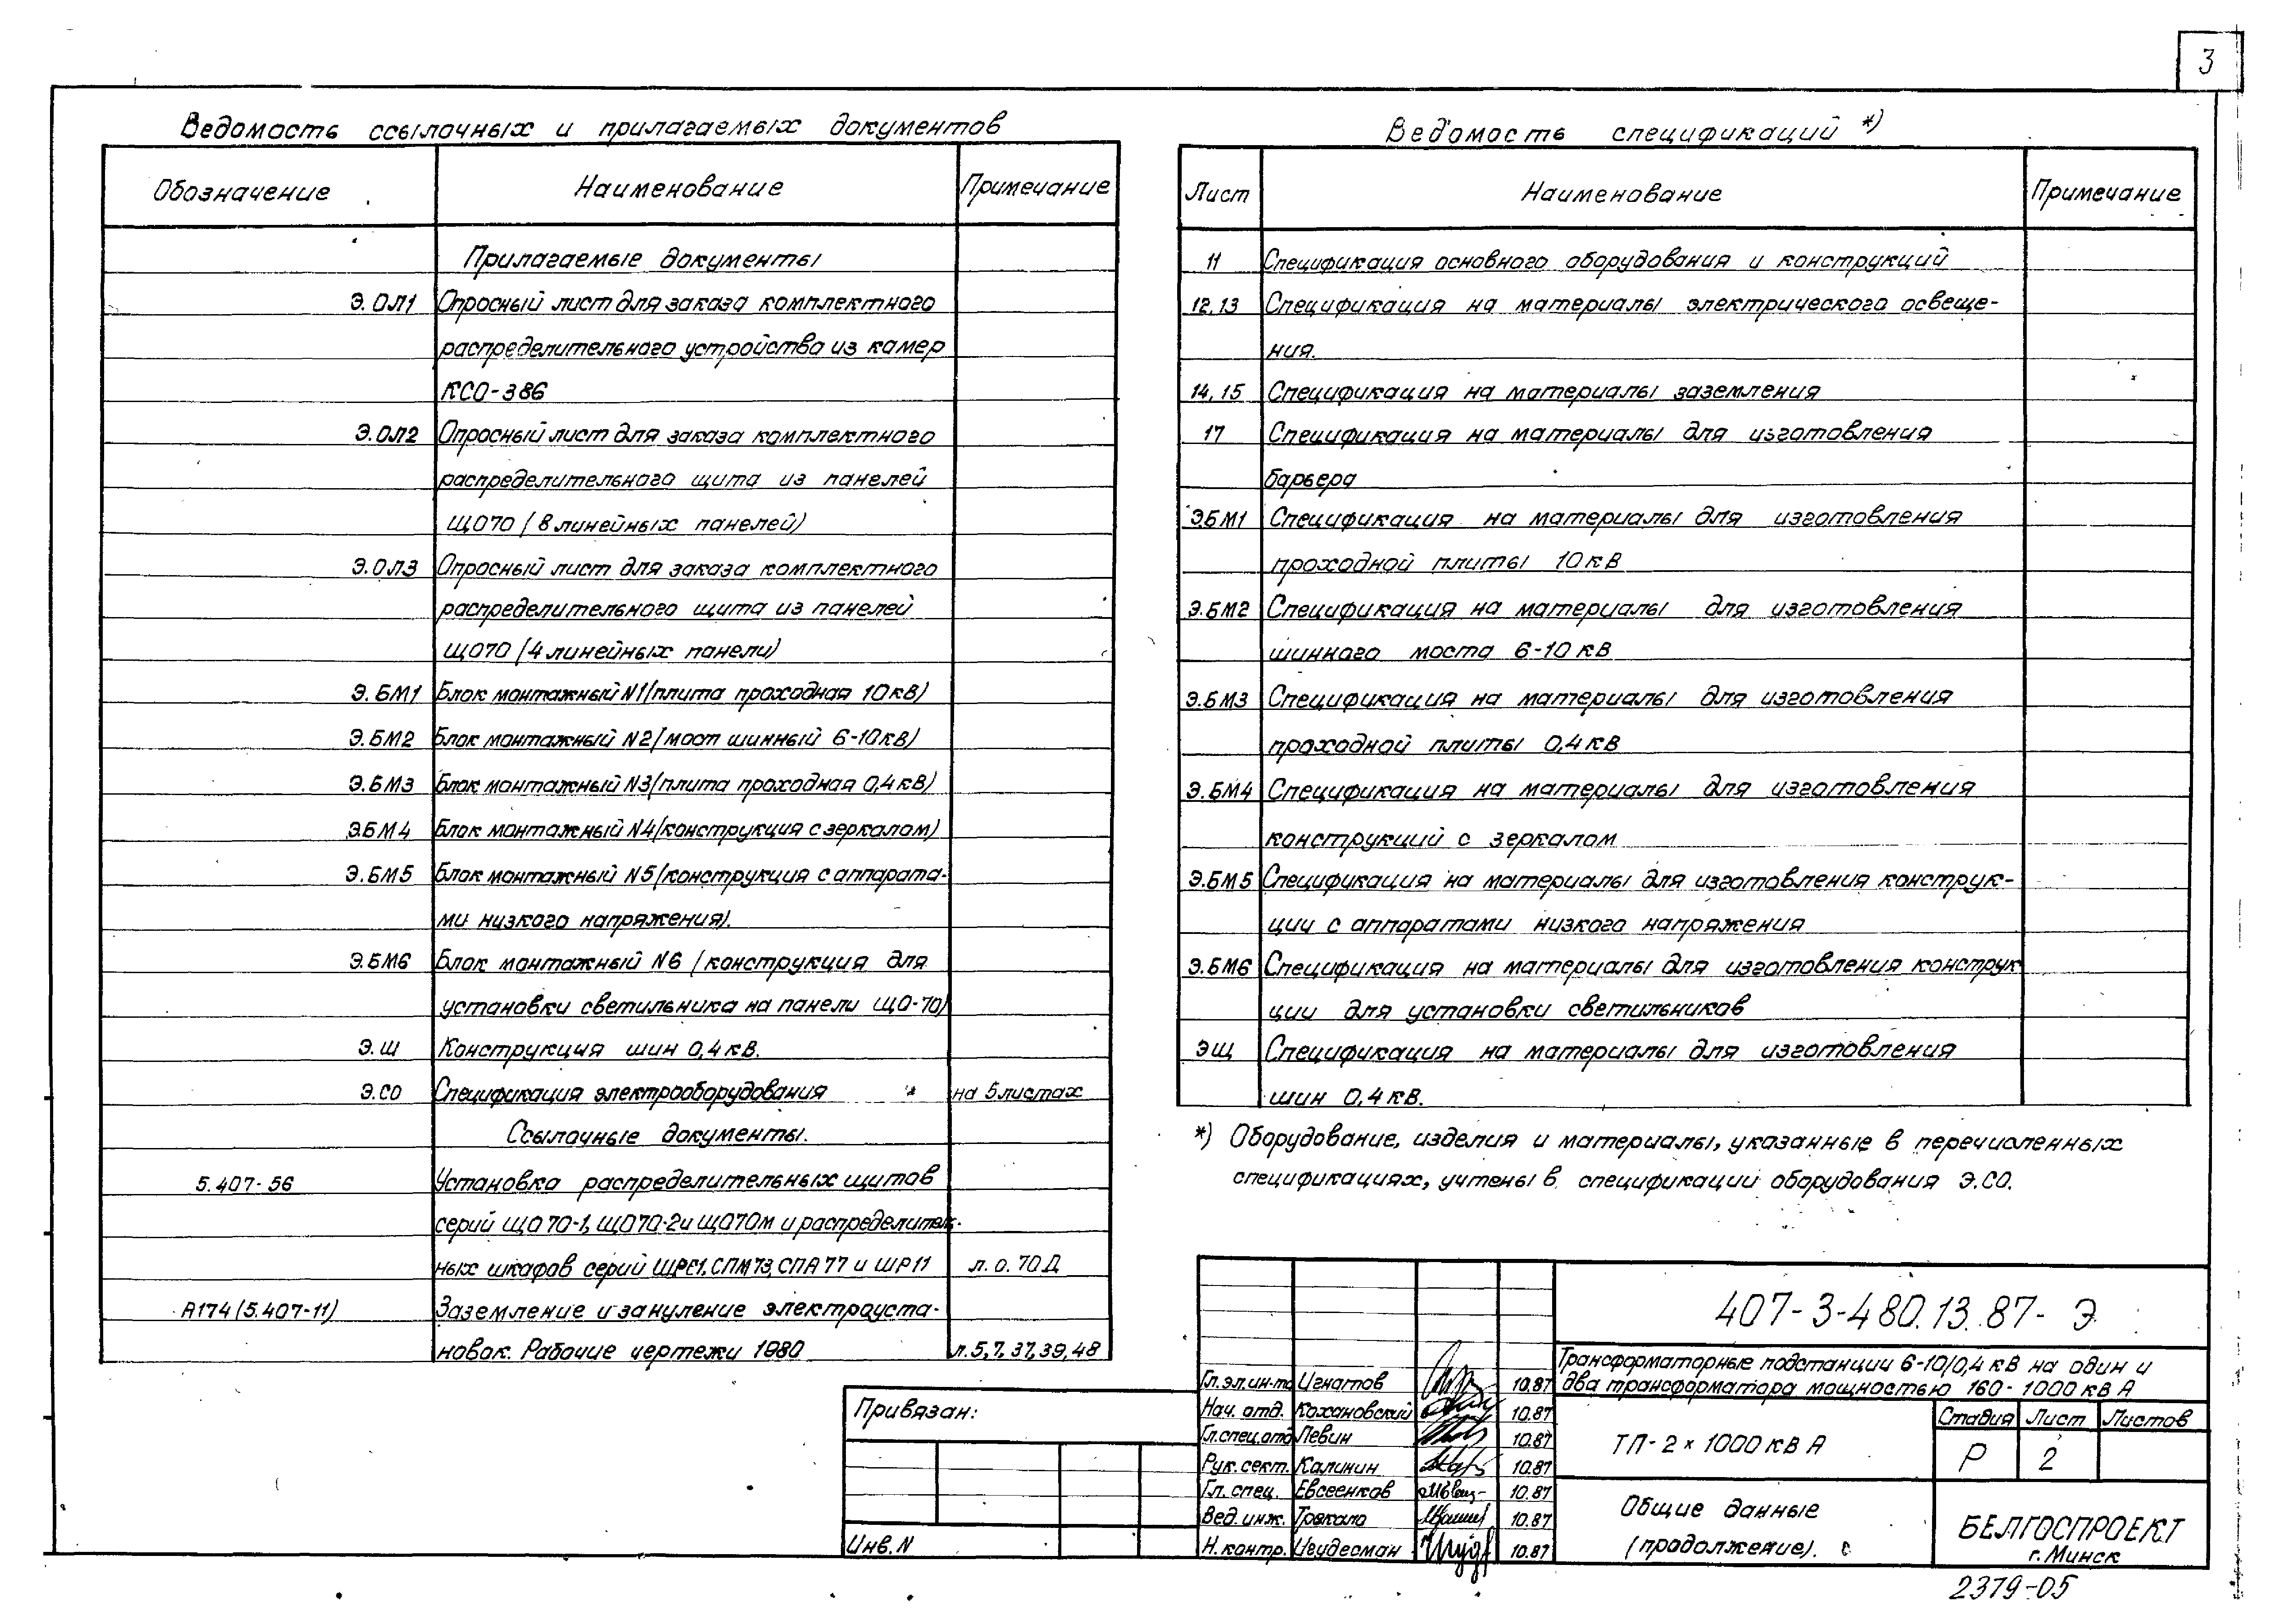 3
Ведомость ссылочных и прилагаемых документов
Обозначение Наименование Примечание
Прилагаемые документы
Э.ОЛ1 Опросный лист для заказа комплектного
распределительного устройства из камер
КСО-386
Э.ОЛ2 Опросный лист для заказа комплектного
распределительного щита из панелей
ЩО70 (8 линейных панелей)
Э.ОЛ3 Опросный лист для заказа комплектного
распределительного щита из панелей
ЩО70 (4 линейных панели)
Э.БМ1 Блок монтажный N1 (плита проходная 10кВ)
Э.БМ2 Блок монтажный N2 (мост шинный 6-10кВ)
Э.БМ3 Блок монтажный N3 (плита проходная 0,4кВ)
Э.БМ4 Блок монтажный N4 (конструкция с зеркалом)
Э.БМ5 Блок монтажный N5 (конструкция с аппарата-
ми низкого напряжения).
Э.БМ6 Блок монтажный N6 (конструкция для
установки светильника на панели ЩО-70)
Э.Ш Конструкция шин 0,4 кВ.
Э.СО Спецификация электрооборудования на 5 листах
Ссылочные документы.
5.407-56 Установка распределительных щитов
серий ЩО70-1, ЩО70-2 и ЩО70м и распределитель-
ных шкафов серий ШРС1, СПМ73, СПА77 и ШР11 л. о. 70Д
А174 (5.407-11) Заземление и зануление электроуста-
новок. Рабочие чертежи 1980 л.5,7,37,39,48
Ведомость спецификаций *)
Лист Наименование Примечание
11 Спецификация основного оборудования и конструкций
12,13 Спецификация на материалы электрического освеще-
ния.
14,15 Спецификация на материалы заземления
17 Спецификация на материалы для изготовления
барьера
Э.БМ1 Спецификация на материалы для изготовления
проходной плиты 10кВ
Э.БМ2 Спецификация на материалы для изготовления
шинного моста 6-10 кВ
Э.БМ3 Спецификация на материалы для изготовления
проходной плиты 0,4 кВ
Э.БМ4 Спецификация на материалы для изготовления
конструкций с зеркалом
Э.БМ5 Спецификация на материалы для изготовления конструк-
ции с аппаратами низкого напряжения
Э.БМ6 Спецификация на материалы для изготовления конструк
ции для установки светильников
ЭЩ Спецификация на материалы для изготовления
шин 0,4 кВ.
*) Оборудование, изделия и материалы, указанные в перечисленных
спецификациях, учтены в спецификации оборудования Э.СО.
407-3-480.13.87- Э
Трансформаторные подстанции 6-10/0,4 кВ на один и
два трансформатора мощностью 160-1000 кВА
Гл.эл.ин-та Игнатов 10.87
Нач. отд. Кохановский 10.87
Гл.спец.отд Левин 10.87
Рук. сект. Калинин 10.87
Гл. спец. Евсеенков 10.87
Вед. инж. 10.87
Н. контр. 10.87
ТП-2×1000 кВА
Стадия Лист Листов
Р 2
Общие данные
(продолжение).
БЕЛГОСПРОЕКТ
г. Минск
Привязан:
Инв.N
2379-05